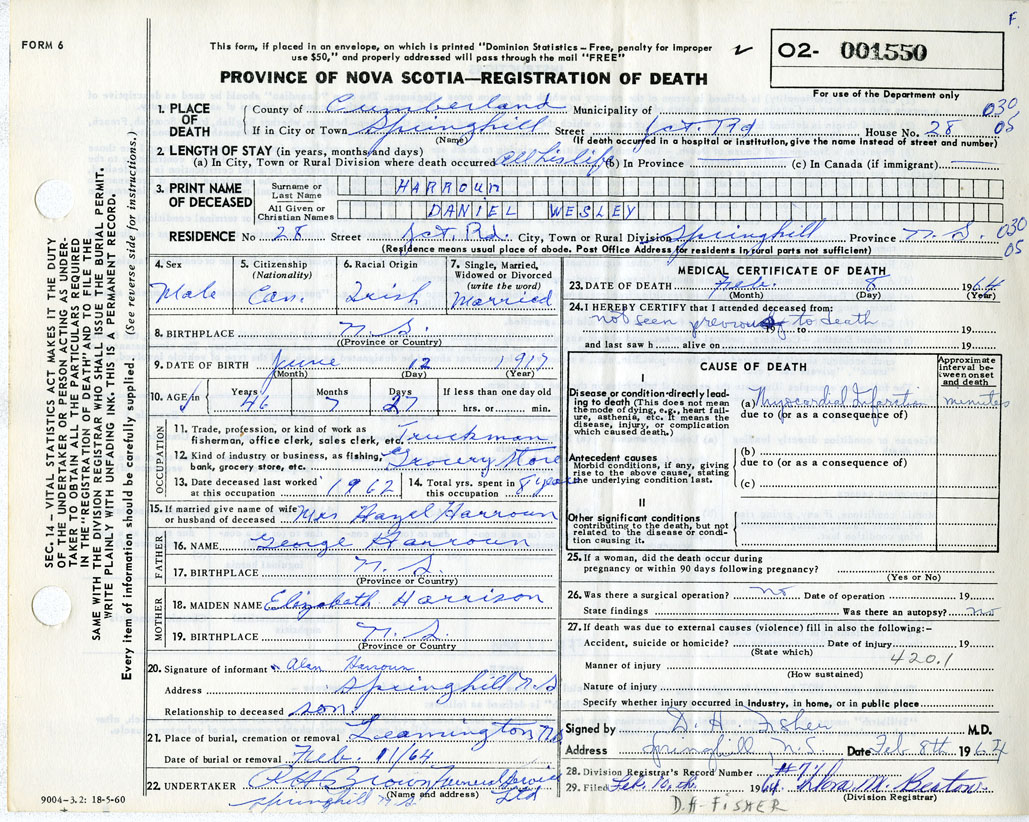 F.
FORM 6
This form, if placed in an envelope, on which is printed "Dominion Statistics – Free, penalty for improper
use $50," and properly addressed will pass through the mail "FREE"
O2- 001550
PROVINCE OF NOVA SCOTIA—REGISTRATION OF DEATH
For use of the Department only
SEC. 14 – VITAL STATISTICS ACT MAKES IT THE DUTY
OF THE UNDERTAKER OR PERSON ACTING AS UNDER-
TAKER TO OBTAIN ALL THE PARTICULARS REQUIRED
IN THE "REGISTRATION OF DEATH" AND TO FILE THE
SAME WITH THE DIVISION REGISTRAR WHO SHALL ISSUE THE BURIAL PERMIT.
WRITE PLAINLY WITH UNFADING INK. THIS IS A PERMANENT RECORD.
Every item of information should be carefully supplied. (See reverse side for instructions.)
1. PLACE OF DEATH
County of Cumberland Municipality of 030
If in City or Town Springhill Street Jct. Rd House No. 28 05
(Name) (If death occurred in a hospital or institution, give the name instead of street and number)
2. LENGTH OF STAY (in years, months and days)
(a) In City, Town or Rural Division where death occurred all his life (b) In Province (c) In Canada (if immigrant)
3. PRINT NAME OF DECEASED
Surname or Last Name HARROUN
All Given or Christian Names DANIEL WESLEY
RESIDENCE No 28 Street Jct. Rd. City, Town or Rural Division Springhill Province N. S. 030
05
(Residence means usual place of abode. Post Office Address for residents in rural parts not sufficient)
4. Sex
Male
5. Citizenship (Nationality)
Can.
6. Racial Origin
Irish
7. Single, Married, Widowed or Divorced (write the word)
Married
8. BIRTHPLACE N. S.
(Province or Country)
9. DATE OF BIRTH June 12 1917
(Month) (Day) (Year)
10. AGE in Years 46 Months 7 Days 27 If less than one day old
hrs. or min.
OCCUPATION
11. Trade, profession, or kind of work as
fisherman, office clerk, sales clerk, etc. Truckman
12. Kind of industry or business, as fishing,
bank, grocery store, etc. Grocery Store
13. Date deceased last worked
at this occupation 1962
14. Total yrs. spent in
this occupation 8 years
15. If married give name of wife
or husband of deceased Mrs Hazel Harroun
FATHER
16. NAME George Harroun
17. BIRTHPLACE N. S.
(Province or Country)
MOTHER
18. MAIDEN NAME Elizabeth Harrison
19. BIRTHPLACE N. S.
(Province or Country
20. Signature of informant Alan Harroun
Address Springhill N.S
Relationship to deceased son.
21. Place of burial, cremation or removal Leamington N.S
Date of burial or removal Feb. 11/64
22. UNDERTAKER Brown Funeral Service
(Name and address)
Springhill N.S. Ltd
9004–3.2: 18-5-60
MEDICAL CERTIFICATE OF DEATH
23. DATE OF DEATH Feb. 8 1964
(Month) (Day) (Year)
24. I HEREBY CERTIFY that I attended deceased from:
not seen previously to death
19 to 19
and last saw h alive on 19
CAUSE OF DEATH
Approximate interval between onset and death
I
Disease or condition directly lead-
ing to death (This does not mean
the mode of dying, e.g., heart fail-
ure, asthenia, etc. It means the
disease, injury, or complication
which caused death.)
(a) Myocardial Infarction minutes
due to (or as a consequence of)
Antecedent causes
Morbid conditions, if any, giving
rise to the above cause, stating
the underlying condition last.
(b)
due to (or as a consequence of)
(c)
II
Other significant conditions
contributing to the death, but not
related to the disease or condi-
tion causing it.
25. If a woman, did the death occur during
pregnancy or within 90 days following pregnancy?
(Yes or No)
26. Was there a surgical operation? no Date of operation 19
State findings Was there an autopsy? no
27. If death was due to external causes (violence) fill in also the following:–
Accident, suicide or homicide? Date of injury 19
(State which) 420.1
Manner of injury
(How sustained)
Nature of injury
Specify whether injury occurred in industry, in home, or in public place
Signed by D. H. Fisher M.D.
Address Springhill N.S. Date Feb 8th 1964
28. Division Registrar's Record Number #7
29. Filed Feb. 10th. 1964 M. Beaton
(Division Registrar)
D.H. FISHER